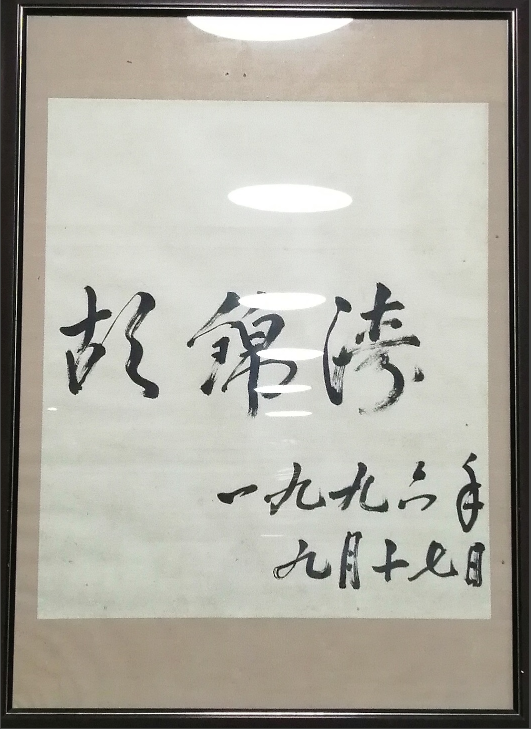 胡锦涛
一九九六年
九月十七日